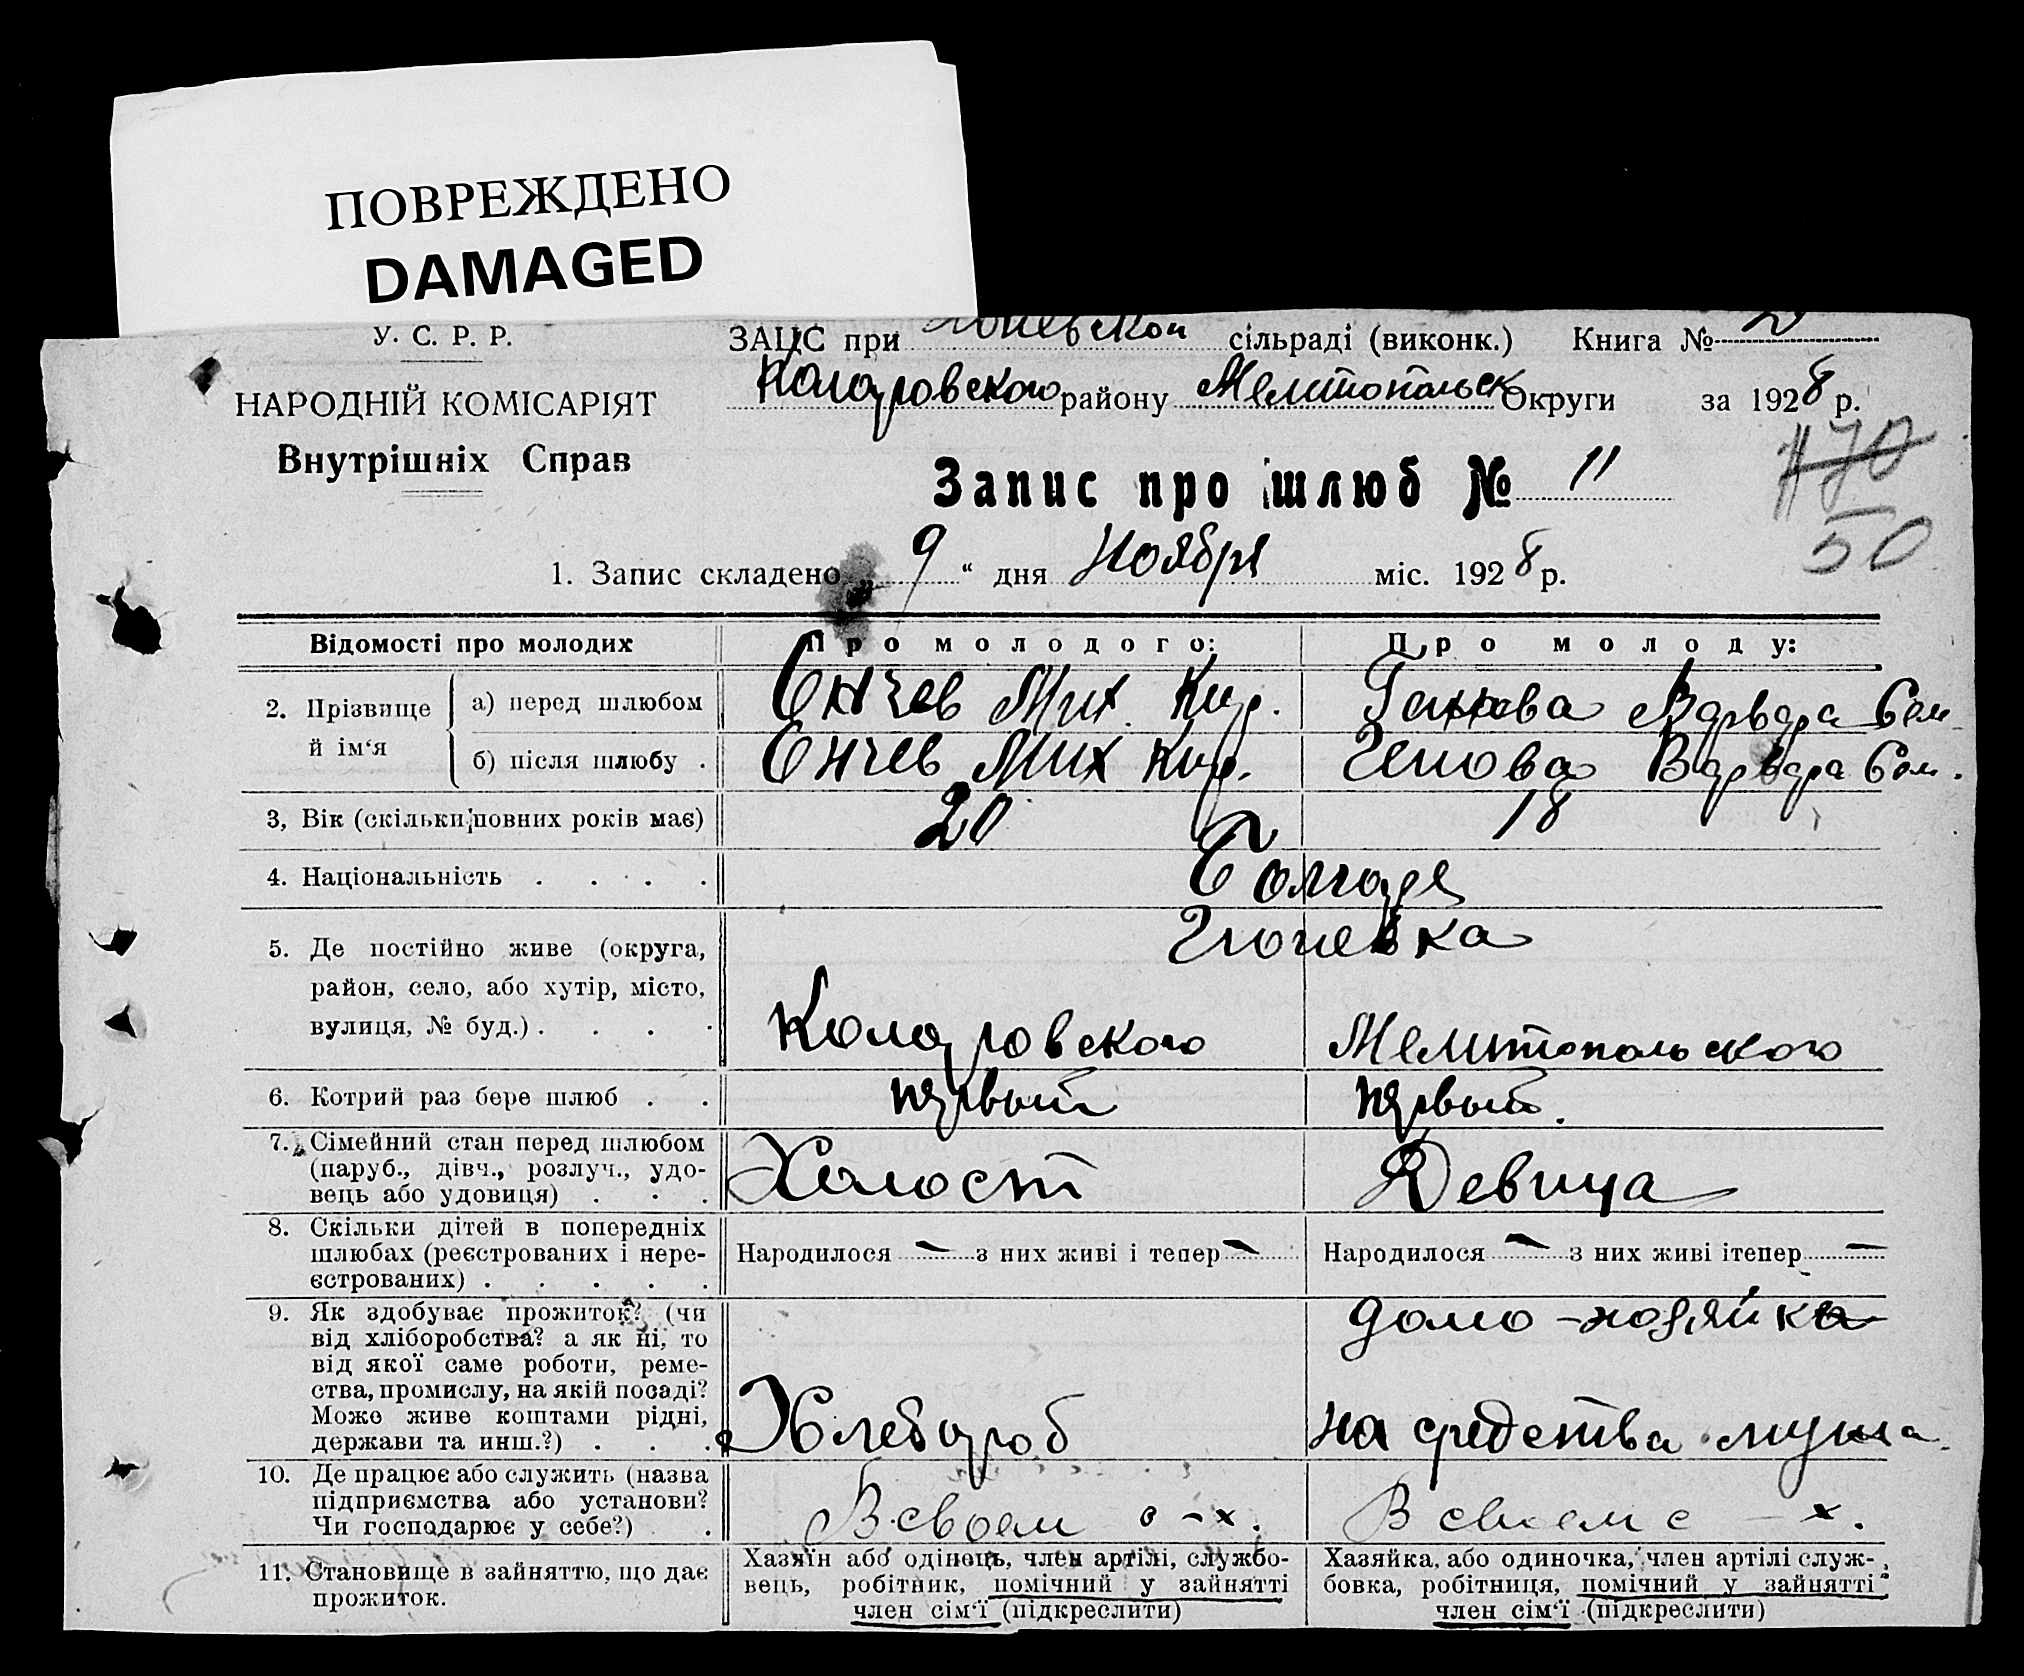 ПОВРЕЖДЕНО
DAMAGED
У. С. Р. Р.
НАРОДНІЙ КОМІСАРІЯТ
Внутрішніх Справ
ЗАЦС при сільраді (виконк.) Книга №
Коларовского району Мелитопольск Округи за 1928 р.
Запис про шлюб № 11
470
50
1. Запис складено „ 9 “ дня Ноября міс. 1928 р.
Відомості про молодих
Про молодого:
Про молоду:
2. Прізвище й ім‘я
а) перед шлюбом
Енчев Мих. Кир.
Варвара Сем
б) після шлюбу .
Енчев Мих Кир.
Варвара Сем.
3, Вік (скільки повних років має)
20
18
4. Національність . . . .
Болгаре
5. Де постійно живе (округа,
район, село, або хутір, місто,
вулиця, № буд.) . . . .
Гюневка
Коларовского
Мелитопольского
6. Котрий раз бере шлюб . .
первый
первый.
7. Сімейний стан перед шлюбом
(паруб., дівч., розлуч., удо-
вець або удовиця) . . .
Холост
Девица
8. Скільки дітей в попередніх
шлюбах (реєстрованих і нере-
єстрованих) . . . . .
Народилося — з них живі і тепер —
Народилося — з них живі ітепер —
9. Як здобуває прожиток? (чи
від хліборобства? а як ні, то
від якої саме роботи, реме-
ства, промислу, на якій посаді?
Може живе коштами рідні,
держави та инш.?) . . .
Хлебороб
домо-хозяйка
на средства мужа
10. Де працює або служить (назва
підприємства або установи?
Чи господарює у себе?) .
В своем с-х.
В своем с-х.
11. Становище в зайняттю, що дає
прожиток.
Хазяїн або одінець, член артілі, службо-
вець, робітник, помічний у зайнятті
член сім‘ї (підкреслити)
Хазяйка, або одиночка, член артілі служ-
бовка, робітниця, помічний у зайнятті
член сім‘ї (підкреслити)